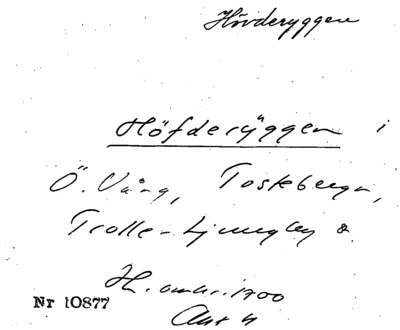 Hövderyggen
Höfderÿggen i
Ö. Vång, Tosteberga,
Trolle-Ljungby s.
H. omkr. 1700
Nr 10877